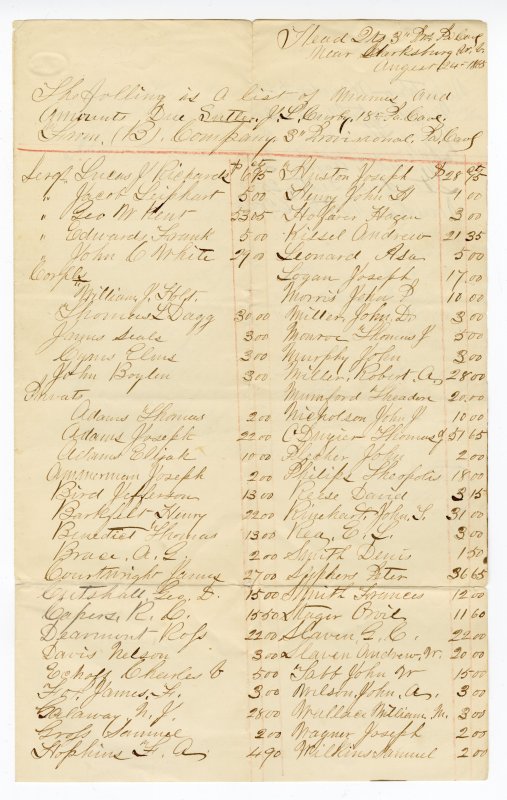 Head Qts 3" Prv Pa Cav
Near Clarksburg W. V.
August 24th 1865
The folling is a list of Names, and
Amounts Due Sutler J. L. 18th Pa Cav.
From (B) Company, 3" Provisional Pa Cav
Sergt Lucas J Richards $ 6 75
" Jacob Leiphart 5 00
" Geo W Kent 53 05
" Edward Frank 5 00
" John C White 29 00
Corpls
"William J. Holt
Thomas L Dagg 30 00
James Seals 3 00
Cyrus Elms 3 00
"John Boylen 3 00
Privats
Adams Thomas 2 00
Adams Joseph 22 00
Adams Elijah 10 00
Ammerman Joseph 2 00
Bird Jefferson 13 00
Henry 22 00
Benedict Thomas 13 00
Brace, A. L. 2 00
Courtwright James 27 00
Geo. D. 15 00
Capers, R. L. 15 50
Dearmont Ross 22 00
Davis Nelson 3 00
Eckoff Charles V 5 00
James, H. 3 00
Galaway N. J. 28 00
Gross Samuel 2 00
Hopkins F. A. 4 90
Huston Joseph $ 28 75
Henry John H 1 00
Hagen 3 00
Kissel Andrew 21 35
Leonard Asa 5 00
Logan Joseph 17 00
Morris John P 10 00
Miller, John Dr 3 00
Monroe Thomas J 5 00
Murphy John 3 00
Miller, Robert A, 28 00
Mumford Theadon 20 00
Nicholson John J 10 00
Thomas J 51 65
John 2 00
Philips Theopolis 18 00
Reese David 3 15
Rhinehart, John, S. 31 00
Rea, E. L. 3 00
Smith Denis 1 50
Siphers Peter 36 65
Smith Frances 12 00
Stager Orvil 11 60
Slaven G. C. 22 00
Slaven Andrew, W. 20 00
Tabb John W 15 00
Wilson, John, A. 3 00
Wallace William M. 3 00
Wagner Joseph 2 00
Wilkins Samuel 2 00